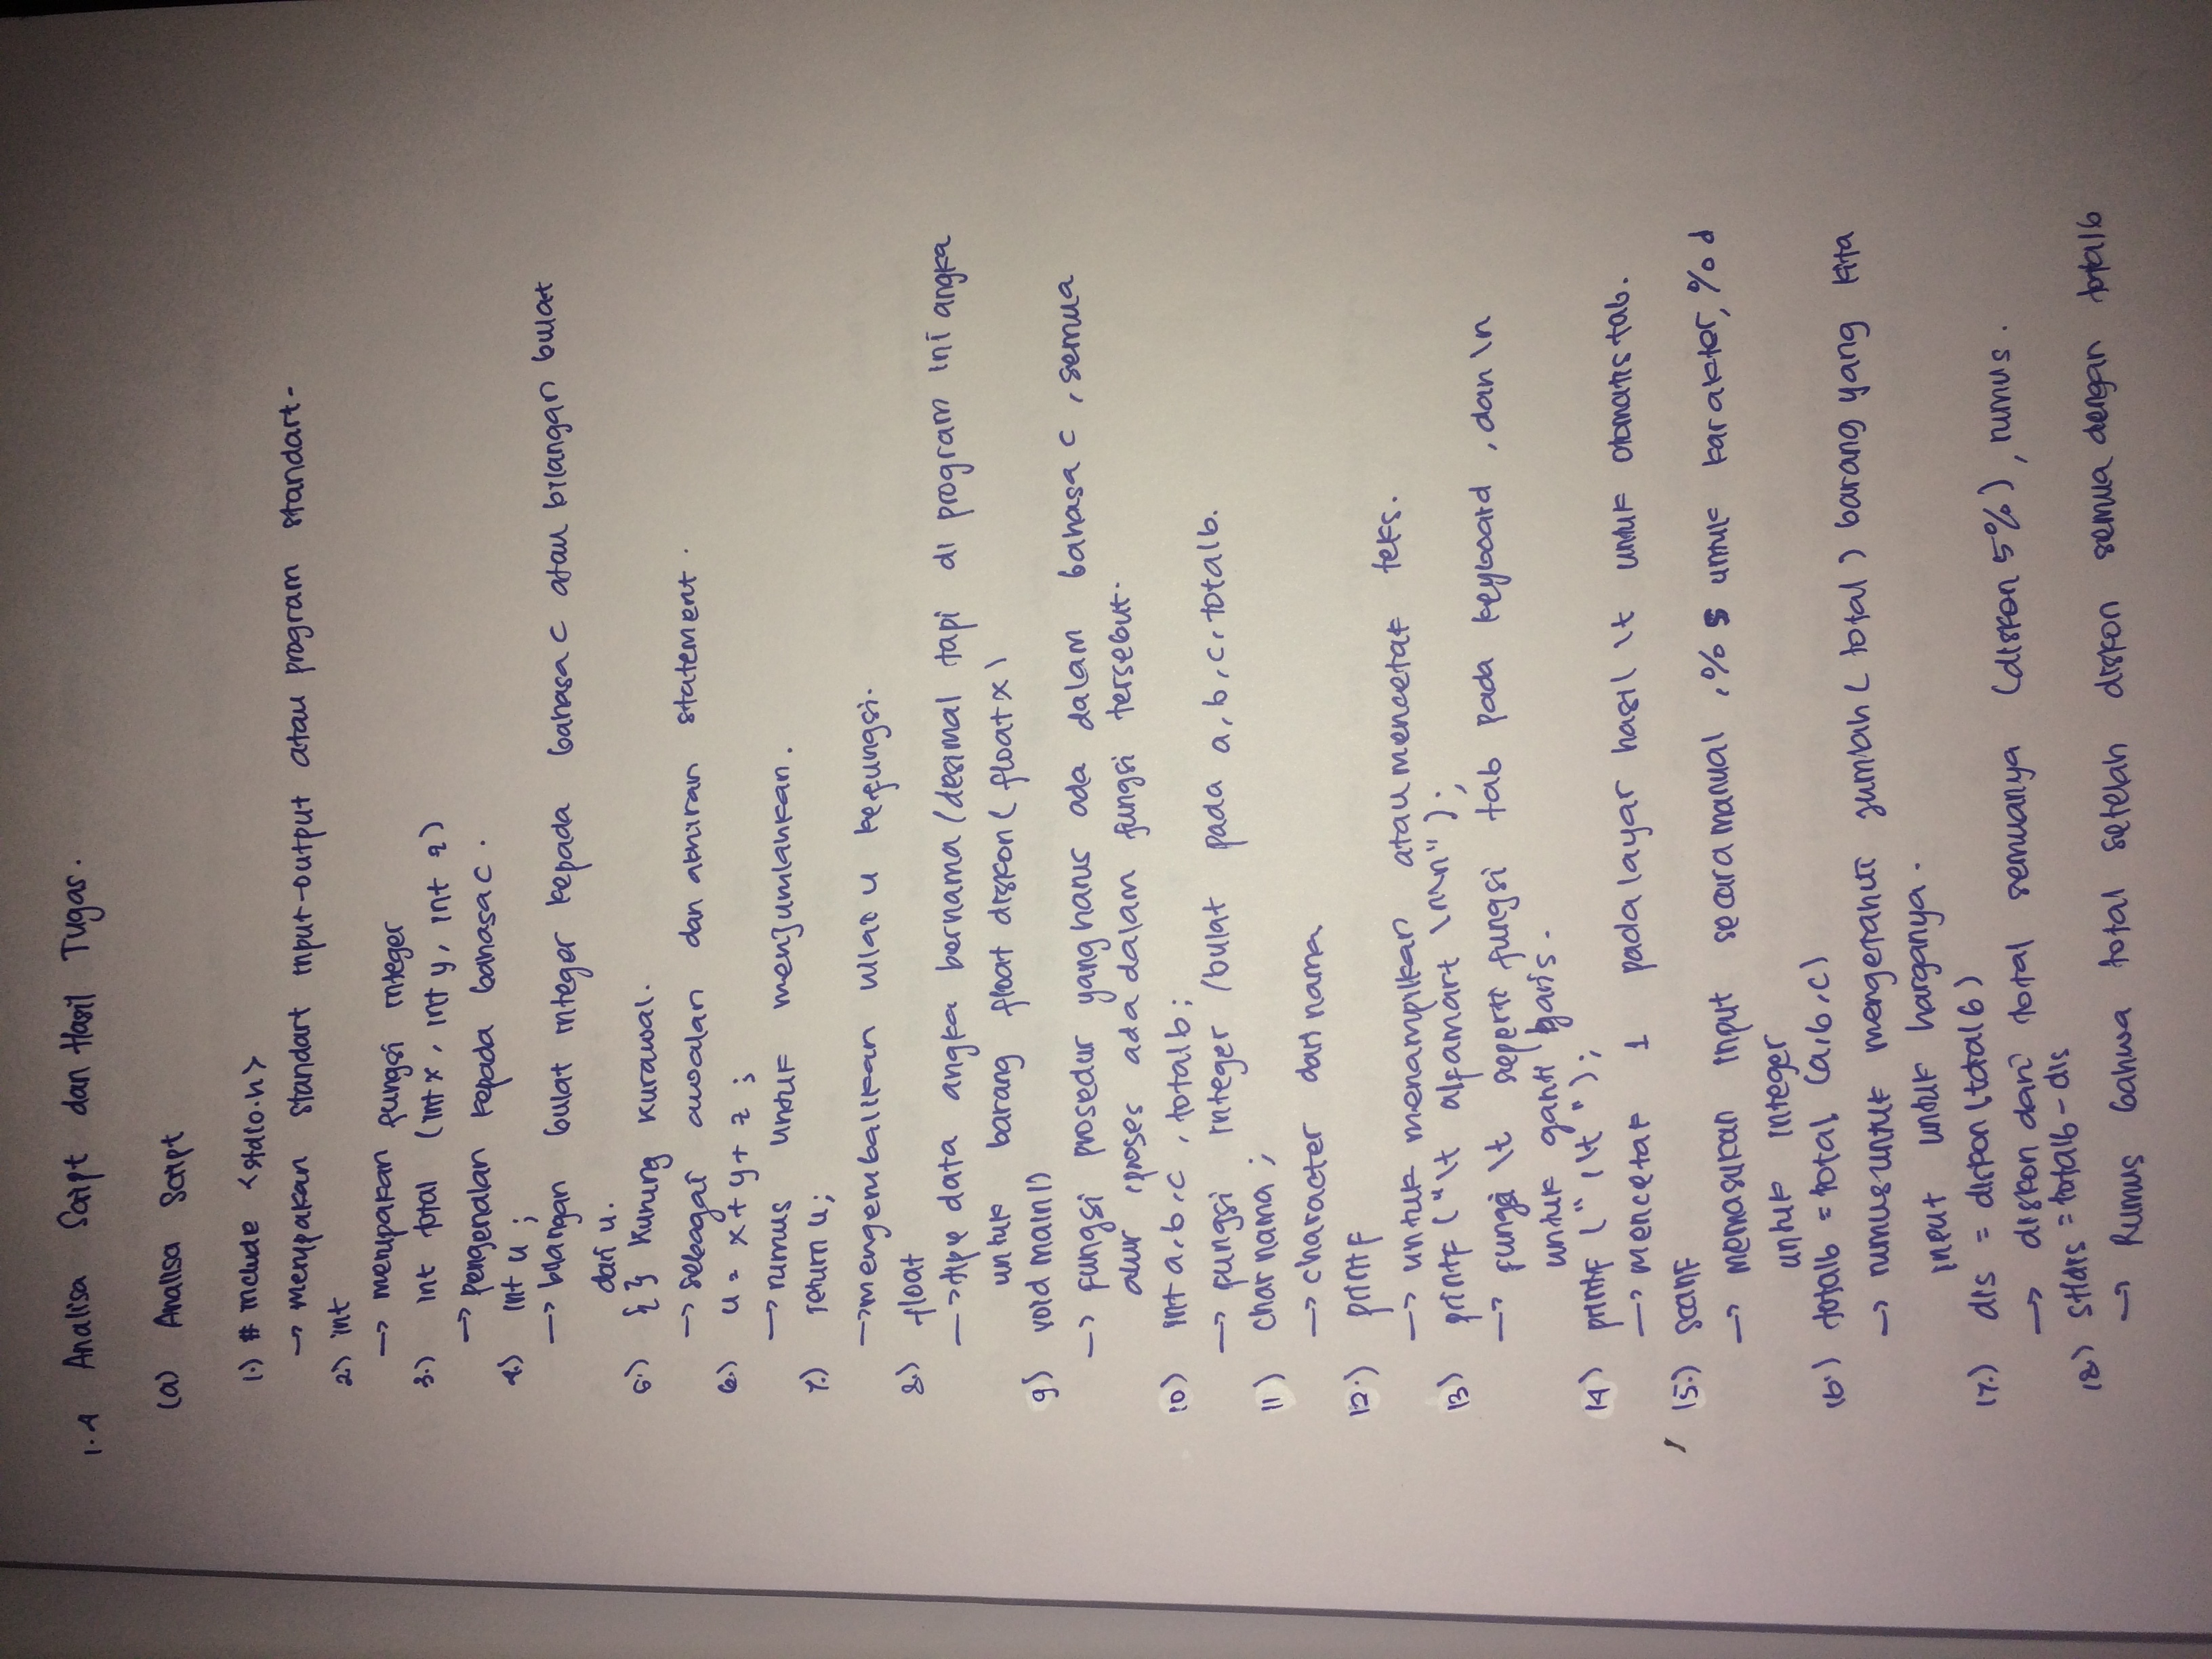 1.4 Analisa Script dan Hasil Tugas.
(a) Analisa Script
1.) # include <stdio.h>
→ merupakan standart input-output atau program standart.
2.) int
→ merupakan fungsi integer
3.) int total (int x, int y, int z)
→ pengenalan kepada bahasa c.
4.) int u;
→ bilangan bulat integer kepada bahasa c atau bilangan bulat
dari u.
5.) { } kurung kurawal.
→ sebagai awalan dan akhiran statement.
6.) u = x + y + z ;
→ rumus untuk menjumlahkan.
7.) return u;
→ mengembalikan nilai u ke fungsi.
8.) float
→ tipe data angka bernama /desimal tapi di program ini angka
untuk barang float diskon ( float x )
9) void main()
→ fungsi prosedur yang harus ada dalam bahasa c, semua
alur /proses ada dalam fungsi tersebut.
10) int a, b, c, totalb;
→ fungsi integer /bulat pada a, b, c, totalb.
11) char nama ;
→ character dari nama
12.) printf
→ untuk menampilkan atau mencetak teks.
13) printf ("\t alfamart \n\n");
→ fungsi \t seperti fungsi tab pada keyboard , dan \n
untuk ganti baris.
14) printf (" \t ");
→ mencetak 1 pada layar hasil \t untuk otomatis tab.
15.) scanf
→ memasukan input secara manual , %s untuk karakter, %d
untuk integer
16.) totalb = total (a, b, c)
→ rumus untuk mengetahui jumlah ( total ) barang yang kita
input untuk harganya.
17.) dis = diskon (totalb)
→ diskon dari total semuanya (diskon 5%), rumus.
18) stldis = totalb - dis
→ Rumus bahwa total setelah diskon semua dengan totalb